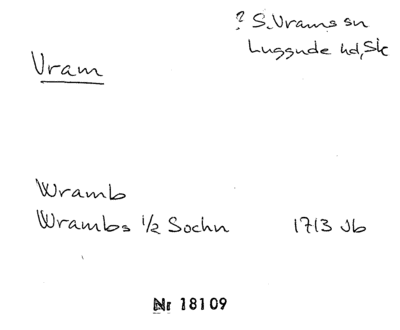 ? S. Vrams sn
Luggude hd, Sk
Vram
Wramb
Wrambs 1/2 Sochn 1713 Jb
Nr 18109